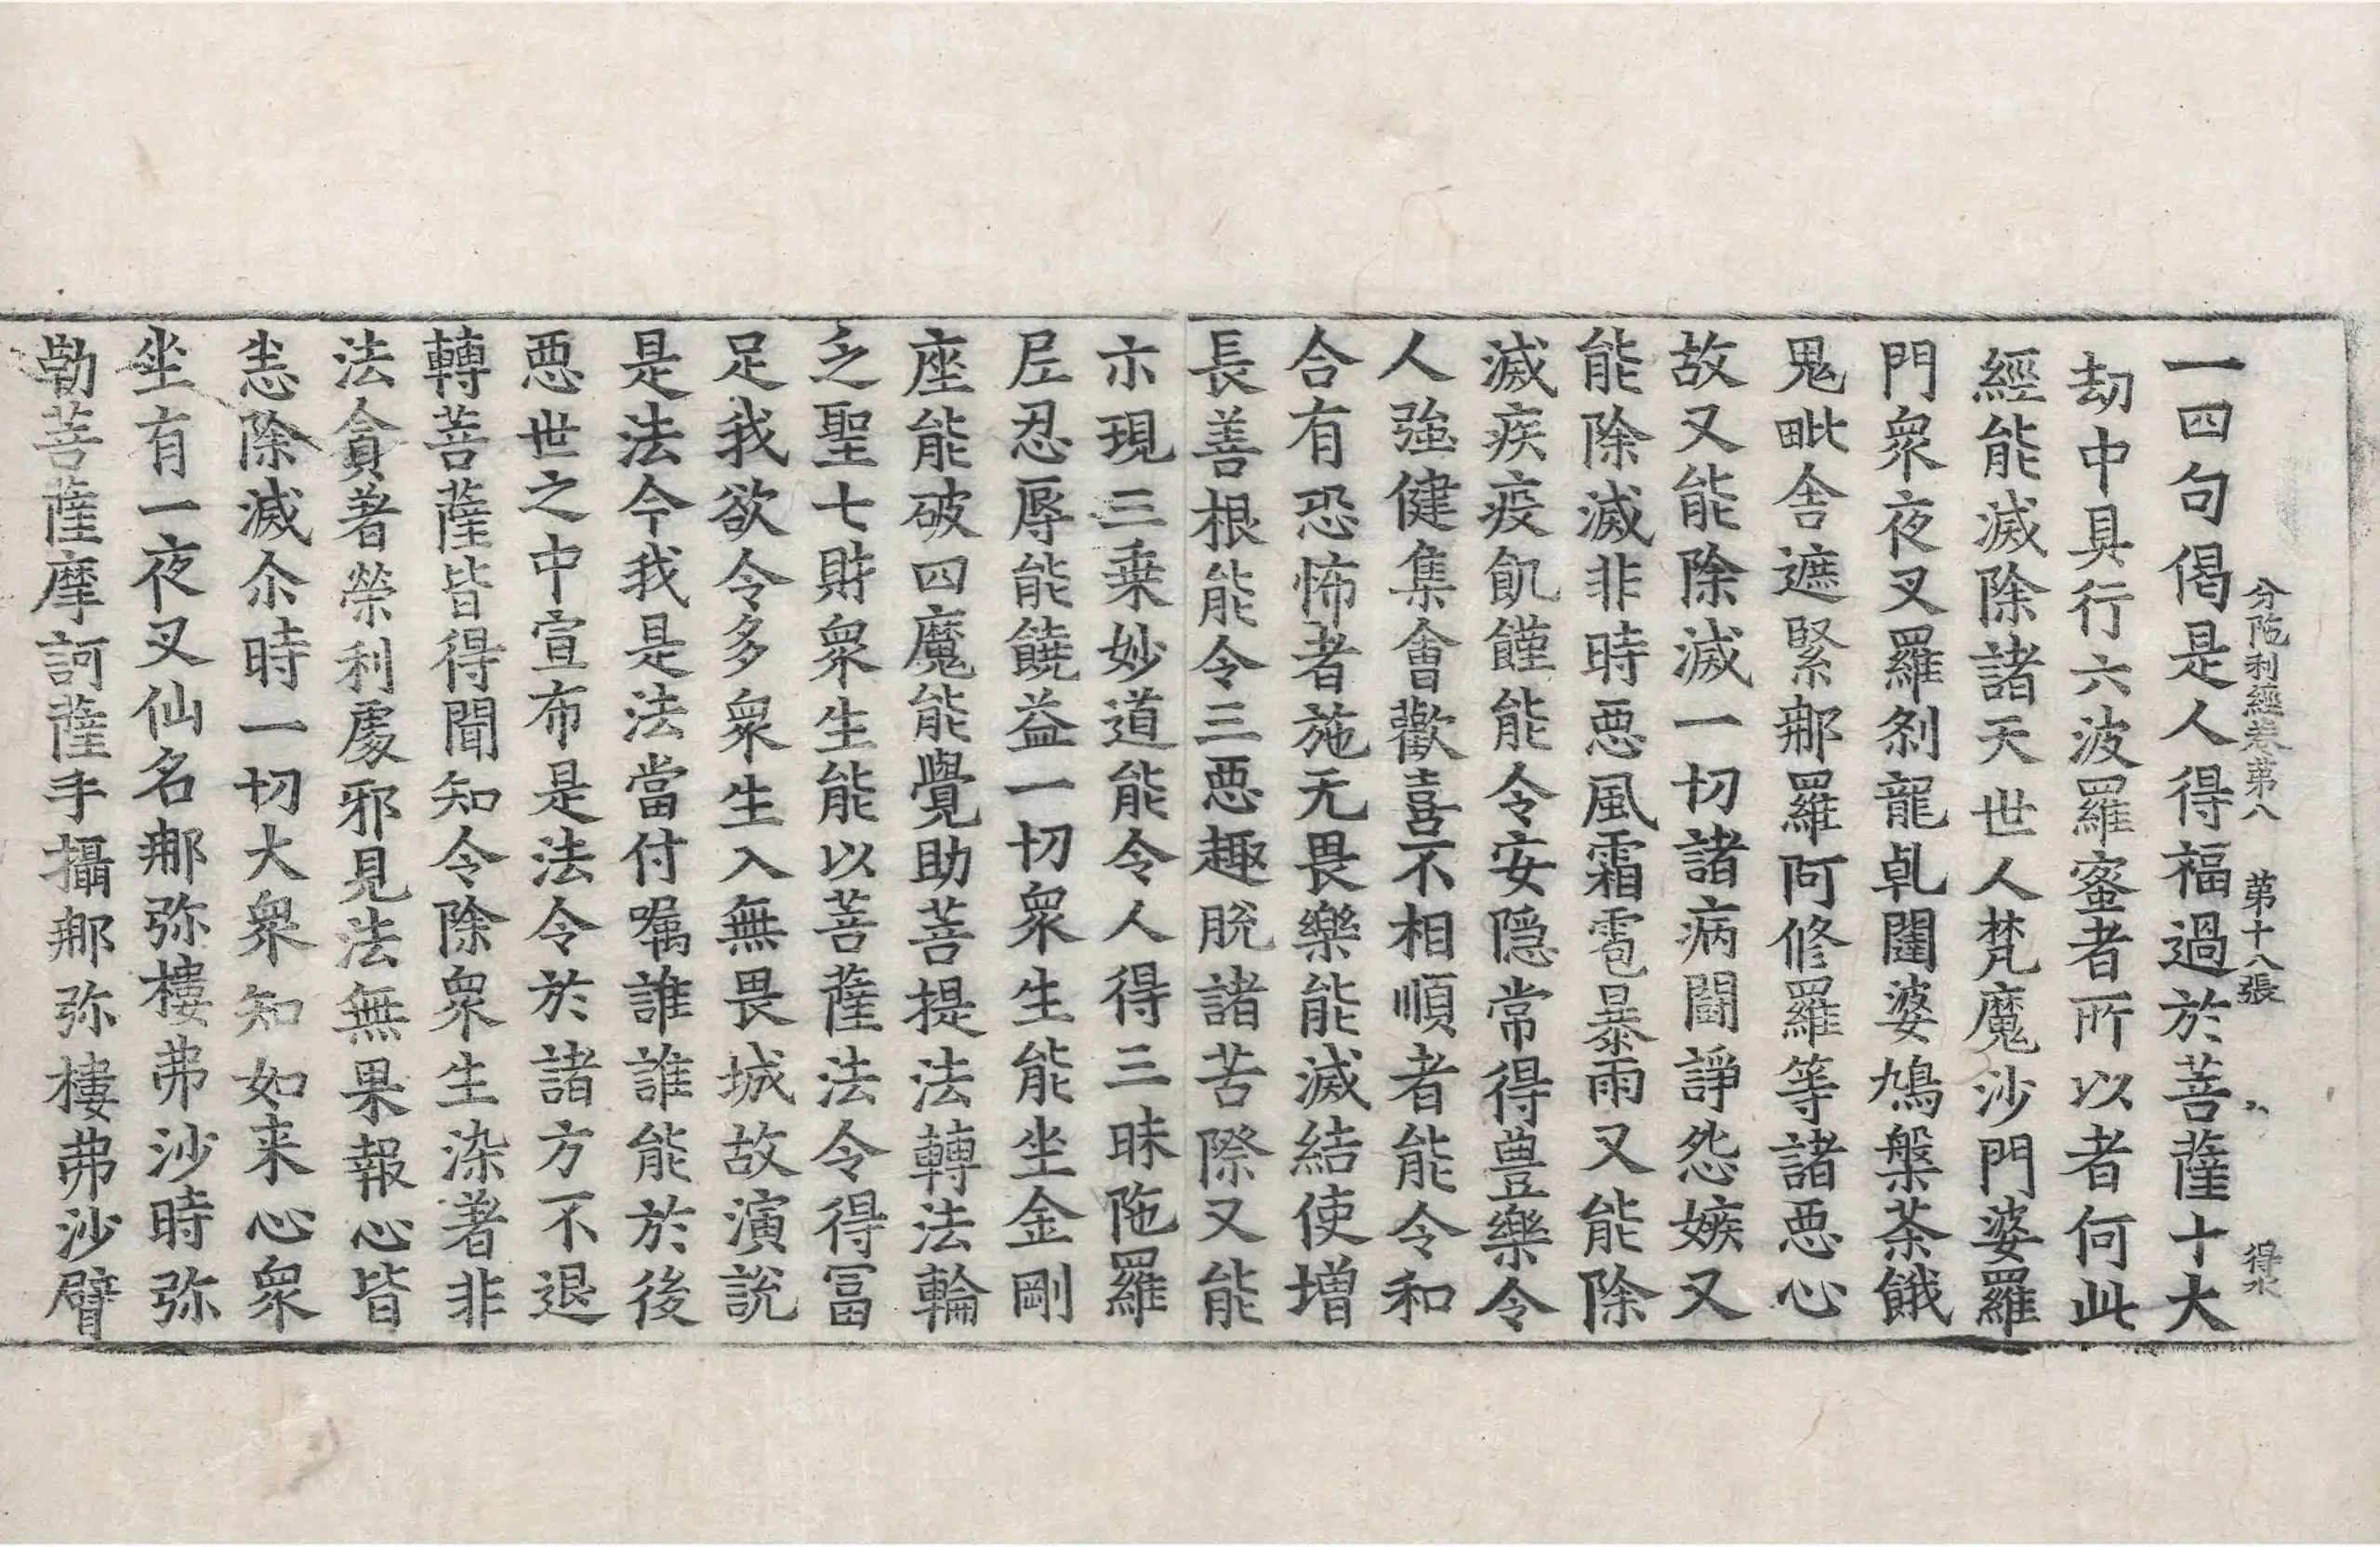 一四句偈是人得福過於菩薩十大
分陁利經卷第八　第十八張　得
劫中具行六波羅蜜者所以者何此
經能滅除諸天世人梵魔沙門婆羅
門衆夜叉羅剎龍乹闥婆鳩槃荼餓
鬼毗舍遮緊那羅阿修羅等諸惡心
故又能除滅一切諸病鬪諍怨嫉又
能除滅非時惡風霜雹暴雨又能除
滅疾疫飢饉能令安隱常得豊樂令
人強健集會歡喜不相順者能令和
合有恐怖者施无畏樂能滅結使増
長善根能令三惡趣脫諸苦際又能
示現三乗妙道能令人得三昧陁羅
𡰱忍辱能饒益一切衆生能坐金剛
座能破四魔能覺助菩提法轉法輪
乏聖七財衆生能以菩薩法令得冨
足我欲令多衆生入無畏城故演說
是法今我是法當付囑誰誰能於後
惡世之中宣布是法令於諸方不退
轉菩薩皆得聞知令除衆生染著非
法貪著榮利處邪見法無果報心皆
悉除滅尒時一切大衆知如来心衆
坐有一夜叉仙名那弥樓弗沙時弥
勒菩薩摩訶薩手攝那弥樓弗沙臂